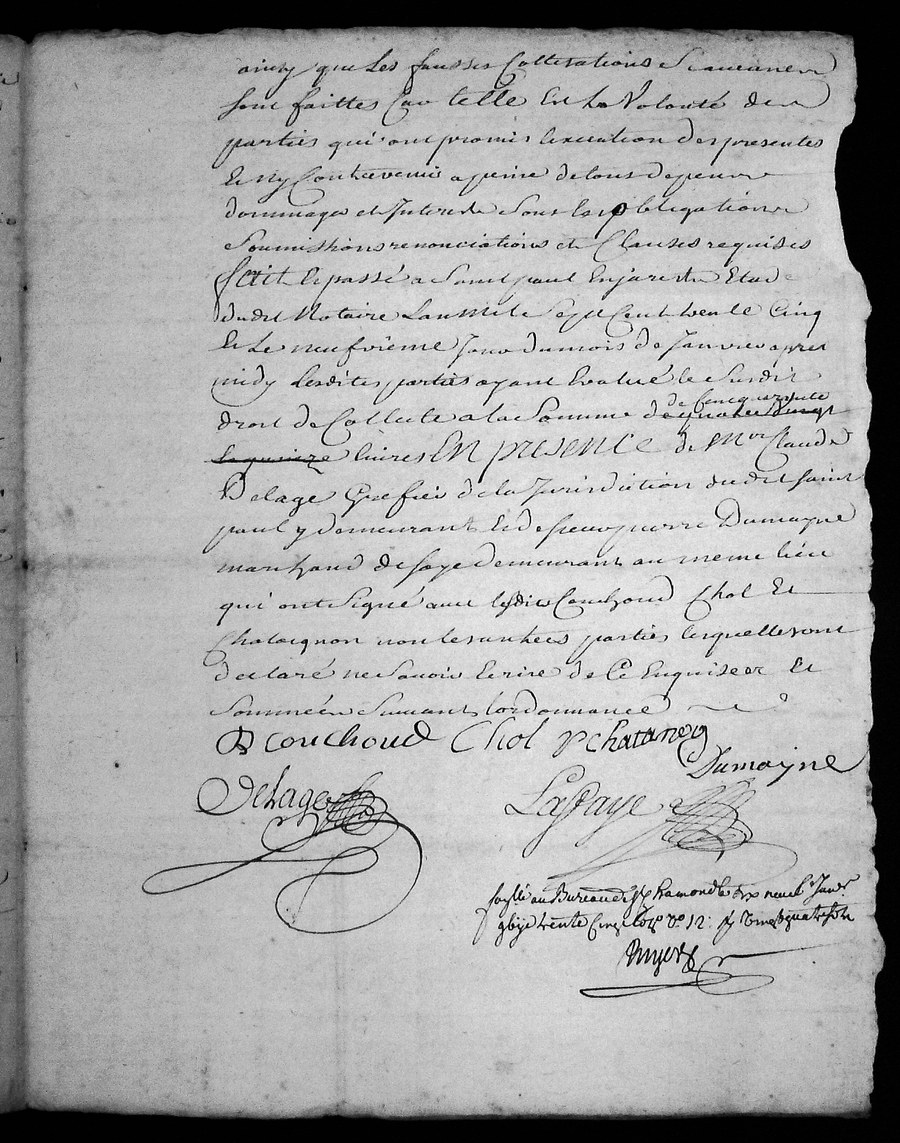 ainsy que les fausses Colterations
sont faittes Car telle Est la Volonté des
parties qui ont promis lexecution des presentes
Et ny Contrevenir a peine de tous depens
dommages et Interets Sous les obligations
Soumissions renonciations et Clauses requises
fait et passé a Saint paul En jarest Etude
dudit Notaire Lan mil Sept Cent trente Cinq
Et Le neufvieme Jour du mois de Janvier apres
midy lesdites parties ayant Evalué le Susdit
droit de Collecte a la Somme de quatre vingt
de Cinquante
Et quinze livres En presence de Mre Claude
Delage Grefier de la Jurisdiction dudit Saint
paul y demeurant Et de Sieur pierre Dumayne
marchand de soye demeurant au meme lieu
qui ont Signé avec lesdits Couchoud Chol Et
Chataignon non les autres parties lesquelles ont
declaré ne Savoir Ecrire de Ce Enquises Et
Sommées Suivant lordonnance
Couchoud Chol p chataneg
Dumayne
Delage
Laffaye
au Bureau de St Chamond le dix neuf Janvr
trente Cinq fo vo 12: quatre sols